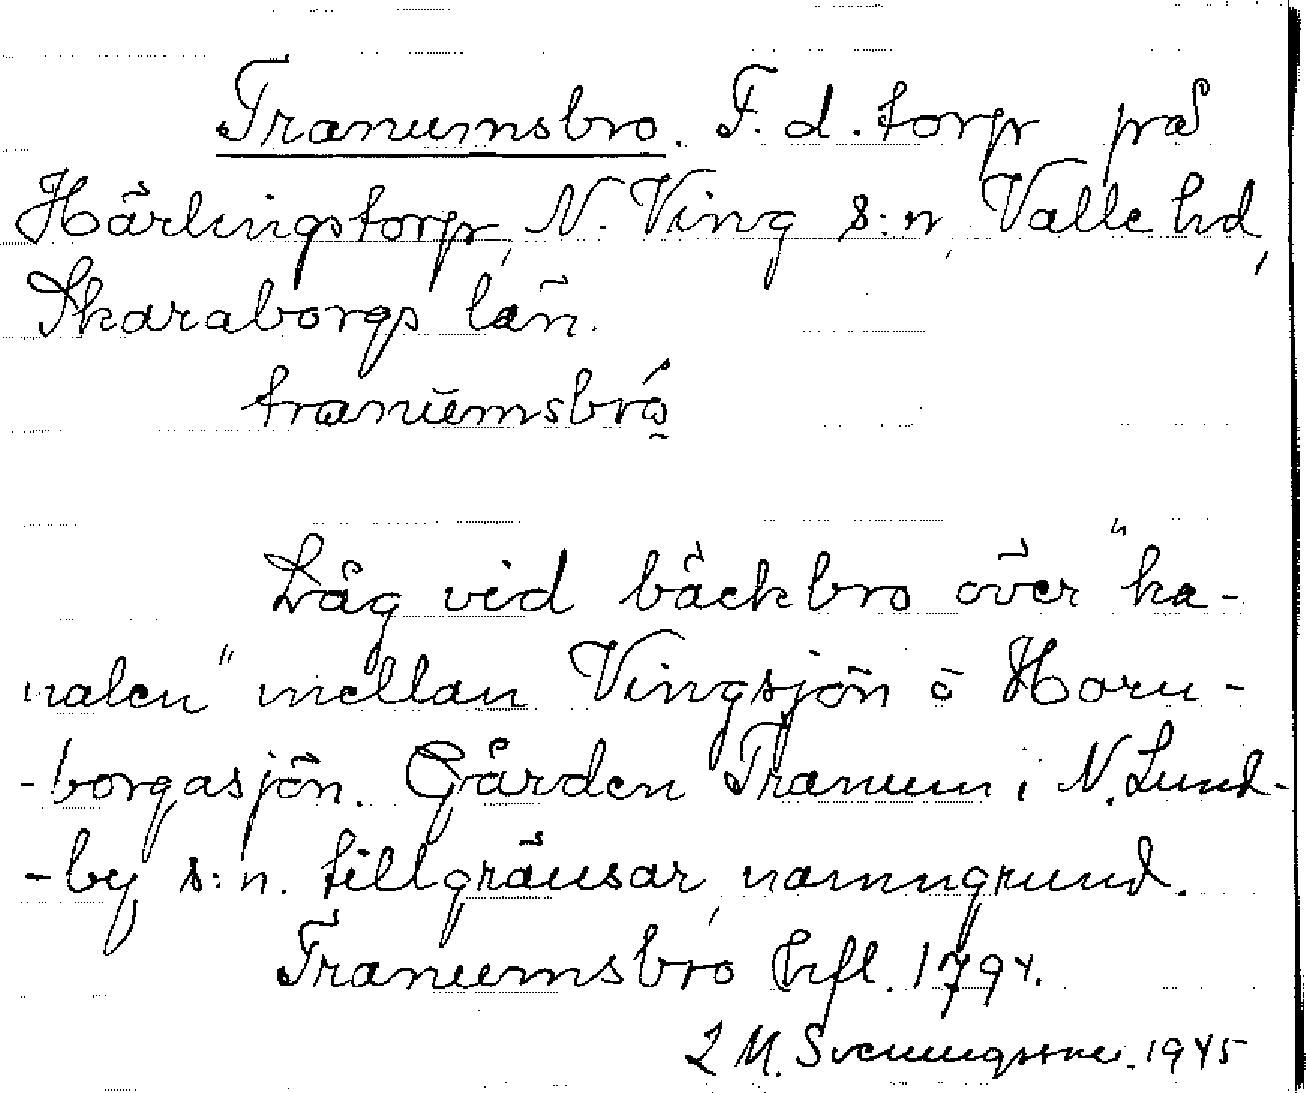 Tranumsbro. F. d. torp på
Härlingstorp, N. Ving s:n, Valle hd,
Skaraborgs län.
tranumsbró
Låg vid bäckbro över "ka-
nalen" mellan Vingsjön o Horn-
-borgasjön. Gården Tranum i N. Lund-
-by s:n. tillgränsar, namngrund.
Tranumsbro hfl. 1794.
L M. Svenungsson. 1945